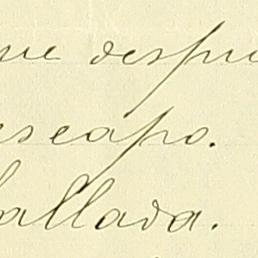 ue despu
eseapo.
allada.